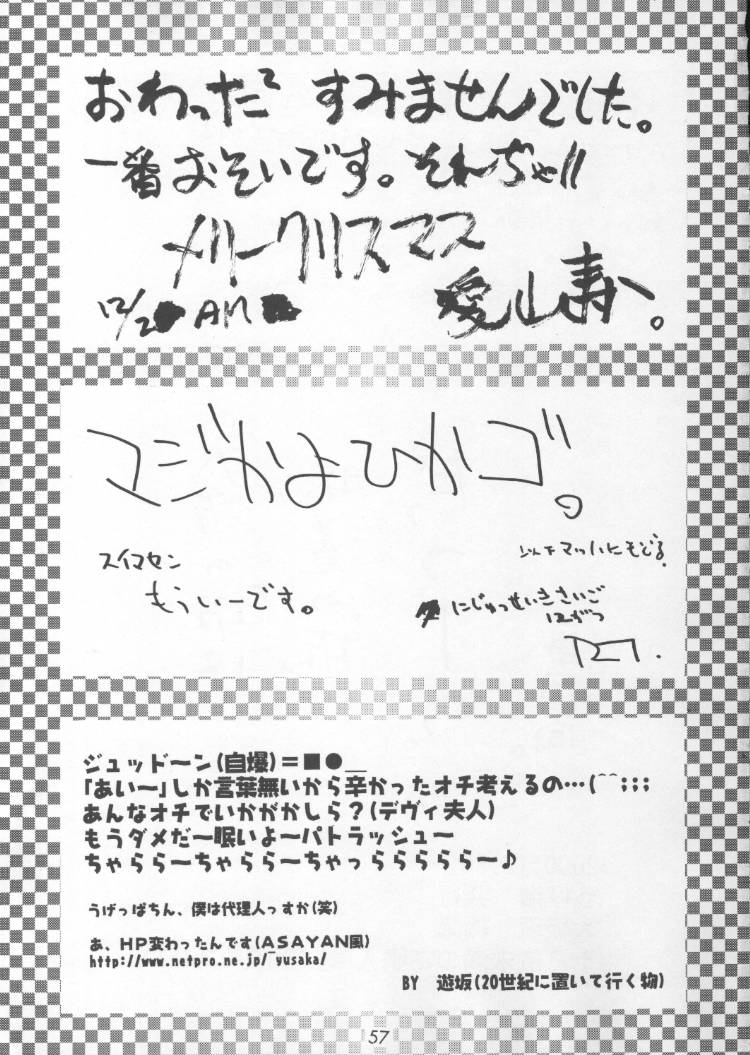 おわった〜 すみませんでした。
一番おそいです。それぢゃ!!
メリークリスマス
12/2 AM
愛山寿
マジかよひかゴ。
スイマセン
もういーです。
にもどる。
にじゅっせいきさいご
12がつ
ジュッドーン(自爆)＝■●＿
「あい〜」しか言葉無いから辛かったオチ考えるの…(￣￣;;;
あんなオチでいかがかしら？(デヴィ夫人)
もうダメだ〜眠いよ〜パトラッシュ〜
ちゃらら〜ちゃらら〜ちゃっららららら〜♪
うげっぱちん、僕は代理人っすか(笑)
あ、HP変わったんです(ASAYAN風)
http://www.netpro.ne.jp/~yusaka/
BY 遊坂(20世紀に置いて行く物)
57